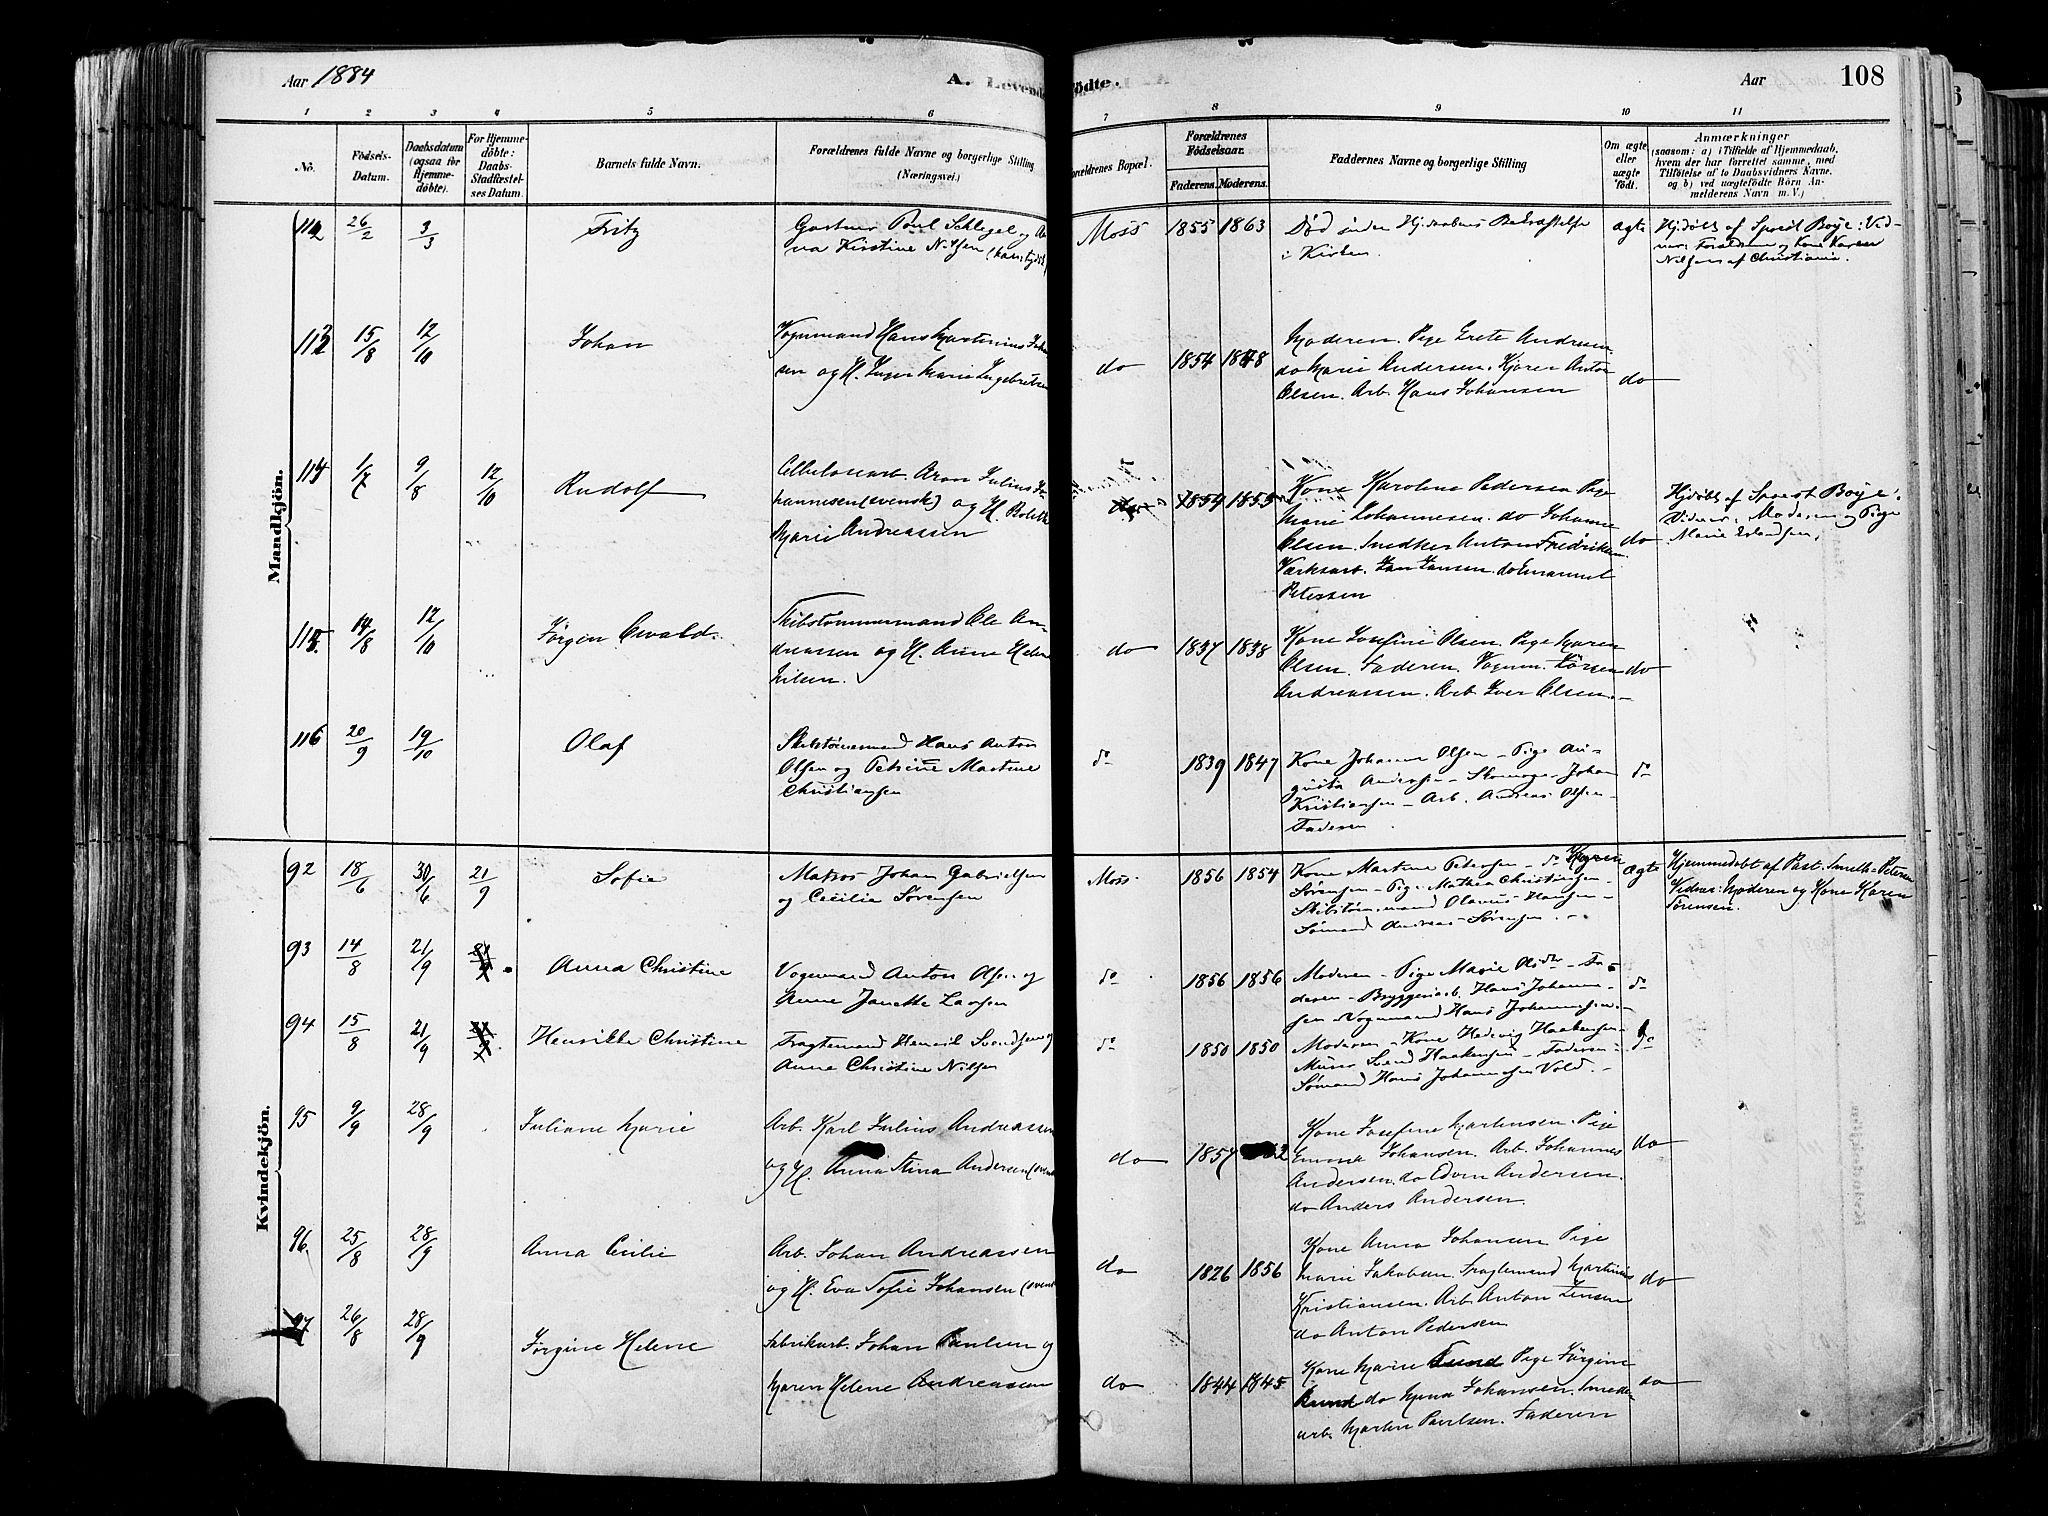 Aar 1884
A. Levende Fødte.
Aar
108
1 2 3 4 5 6 7 8 9 10 11
No.
Fødsels-
Datum.
Daabsdatum
(ogsaa for
Hjemme-
døbte).
For Hjemme-
døbte:
Daabs-
Stadfæstel-
ses Datum.
Barnets fulde Navn.
Forældrenes fulde Navne og borgerlige Stilling
(Næringsvei.)
Forældrenes Bopæl.
Forældrenes
Fødselsaar.
Faderens. Moderens.
Faddernes Navne og borgerlige Stilling
Om ægte
eller
uægte
født.
Anmærkninger
(saasom: a) i Tilfælde af Hjemmedaab,
hvem der har forrettet samme, med
Tilføielse af to Daabsvidners Navne,
og b) ved uægtefødte Børn An-
melderens Navn m. V.)
Mandkjøn.
112 26/2 3/3 Fritz
Gartner Paul Schlegel og An-
na Kirstine Nilsen
Moss 1855 1863
i Kirken.
ægte
Hjdøbt af Sprest Boye: Vid-
ner: Forældrene og Kone Karen
Nilsen af Christiania.
113 15/8 12/10 Johan
Vognmand Hans Martinius Johan
sen og H. Inger Marie Ingebretsen
do 1854 1848
Moderen. Pige Grete Andresen.
do Marie Andersen. Kjører Anton
Olsen. Arb. Hans Johansen
do
114 1/7 9/8 12/10 Rudolf
Cellulosearb. Aron Julius Jo-
hannesen (svensk) og H. Bolette
Marie Andreassen
1854 1855
Kone Karoline Pedersen Pige
Marie Johannesen. do Johanne
Olsen. Snedker Anton Fredriksen
Værksarb. Jan Jansen. do Emanuel
Petersen
do
Hjdøbt af Sprest Boye:
Vidner: Moderen og Pige
Marie
115. 14/8 12/10 Jørgen Oswald.
Skibstømmermand Ole An-
dreassen og H. Anne Helene
Nilsen.
do 1837 1838
Kone Josefine Olsen. Pige Karen
Olsen. Faderen. Vognm. Jørgen
Andreassen. Arb. Iver Olsen.
do
116 20/9 19/10 Olaf
Skibstømmermand Hans Anton
Olsen og Petrine Martine
Christiansen
do 1839 1847
Kone Johanne Olsen - Pige Au-
gusta Andersen - Skomager Johan
Kristiansen - Arb. Andreas Olsen -
Faderen.
do
Kvindekjøn.
92 18/6 30/6 21/9 Sofie
Matros Johan Gabrielsen
og Cecilia Sørensen
Moss. 1856 1854
Kone Martine Petersen - do Karen
Sørensen - Pige Mathea Christiansen -
Skibstømmermand Olavus Hansen -
Sømand Andreas Sørensen.
ægte
Hjemmedøbt af Past. Smelh-Petersen
Vidner: Moderen og Kone Karen
Sørensen.
93 14/8 21/9 Anna Christine
Vognmand Anton Olsen og
Anne Janette Larsen
do 1856 1856
Moderen - Pige Marie Olsdtr - Fa-
deren - Bryggeriarb. Hans Johanne-
sen - Vognmand Hans Johannesen.
do
94 15/8 21/9 Henrikke Christine
Fragtemand Henrik Svendsen og
Anna Christine Nilsen
do 1850 1850
Moderen - Kone Hedevig Haakensen -
Murer Svend Haakensen - Faderen -
Sømand Hans Johannesen Vold.
do
95 9/9 28/9 Juliane Marie
Arb. Karl Julius Andreassen
og H. Anna Stina Andersen (svensk
do 1857
Kone Josefine Martensen. Pige
Emma Johansen. Arb. Johannes
Andersen. do Edvin Andersen.
do Anders Andersen.
do
96. 25/8 28/9 Anna Cecilie
Arb. Johan Andreassen
og H. Eva Sofie Johansen (svensk
do 1826 1856
Kone Anna Johansen Pige
Marie Jakobsen. Fragtemand Martinius
Kristiansen. Arb. Anton Jensen
do Anton Pedersen
do
97 26/8 28/9 Jørgine Helene
Fabrikarb. Johan Paulsen og
Maren Helene Andreassen
do 1844 1845
Kone Marie Lund Pige Jørgine
Lund do Anna Johansen. Smede-
arb. Martin Paulsen. Faderen
do